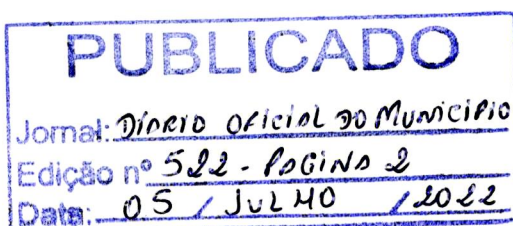 PUBLICADO
Jornal: DIÁRIO OFICIAL DO MUNICÍPIO
Edição nº 522 - PÁGINA 2
Data: 05 / JULHO / 2022